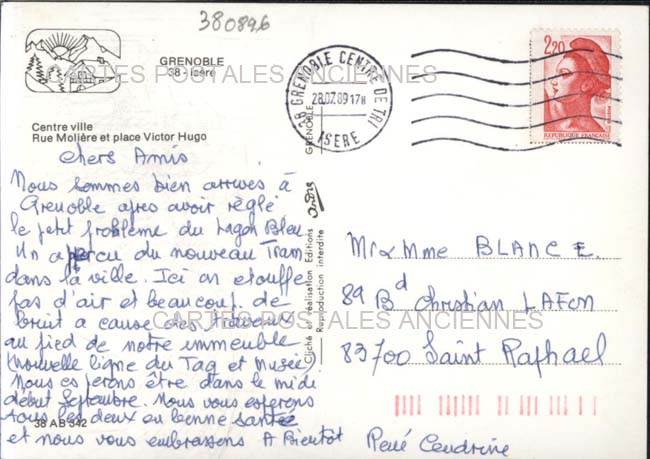 380896
GRENOBLE
38 - Isère
CARTES POSTALES ANCIENNES
Centre ville
Rue Molière et place Victor Hugo
38 GRENOBLE CENTRE DE TRI
28.07.89 17H
ISERE
GRENOBLE
2,20
REPUBLIQUE FRANCAISE
Chers Amis
Nous sommes bien arrives à
Grenoble apres avoir règlé
le petit problème du Lagon Bleu.
Un aperçu du nouveau Tram
dans la ville. Ici on etouffe
pas d'air et beaucoup de
bruit a cause des travaux
au pied de notre immeuble
(nouvelle ligne du Tag et Musée)
Nous esperons être dans le midi
début Septembre. Nous vous esperons
tous les deux en bonne santée
et nous vous embrassons A Bientôt
René Cendrine
Cliché et réalisation Editions André
Reproduction interdite
Mr & Mme BLANC E.
89 Bd Christian LAFON
83700 Saint Raphael
CARTES POSTALES ANCIENNES
38 AB 342